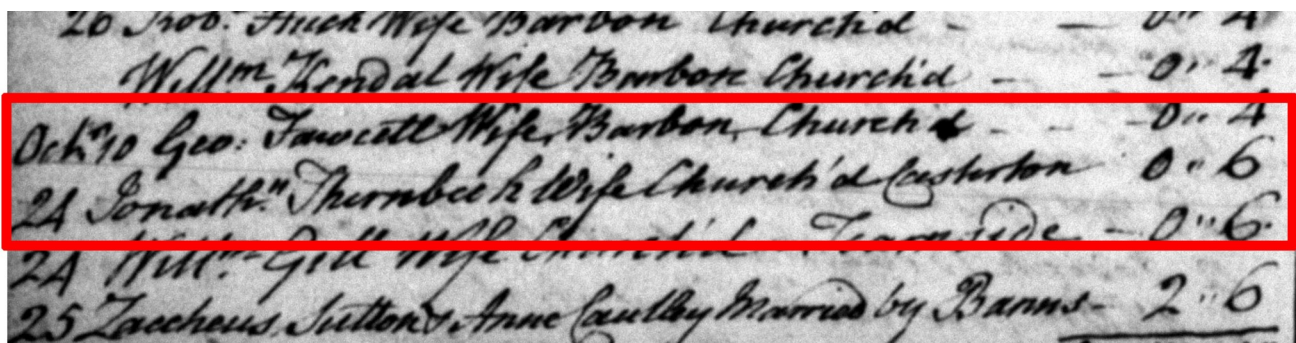 26 Rob.t Huck Wife Barbon Church'd - - 0" 4
Will.m Kendal Wife Barbon Church'd - - 0" 4
Oct.r 10 Geo: Fawcett Wife, Barbon, Church'd - - 0" 4
24 Jonath.n Thurnbeck Wife Church'd Casterton 0" 6
24 Will.m Gill Wife Church'd - - 0" 6
25 Zaccheus Sutton & Anne Cautley Married by Banns - 2" 6